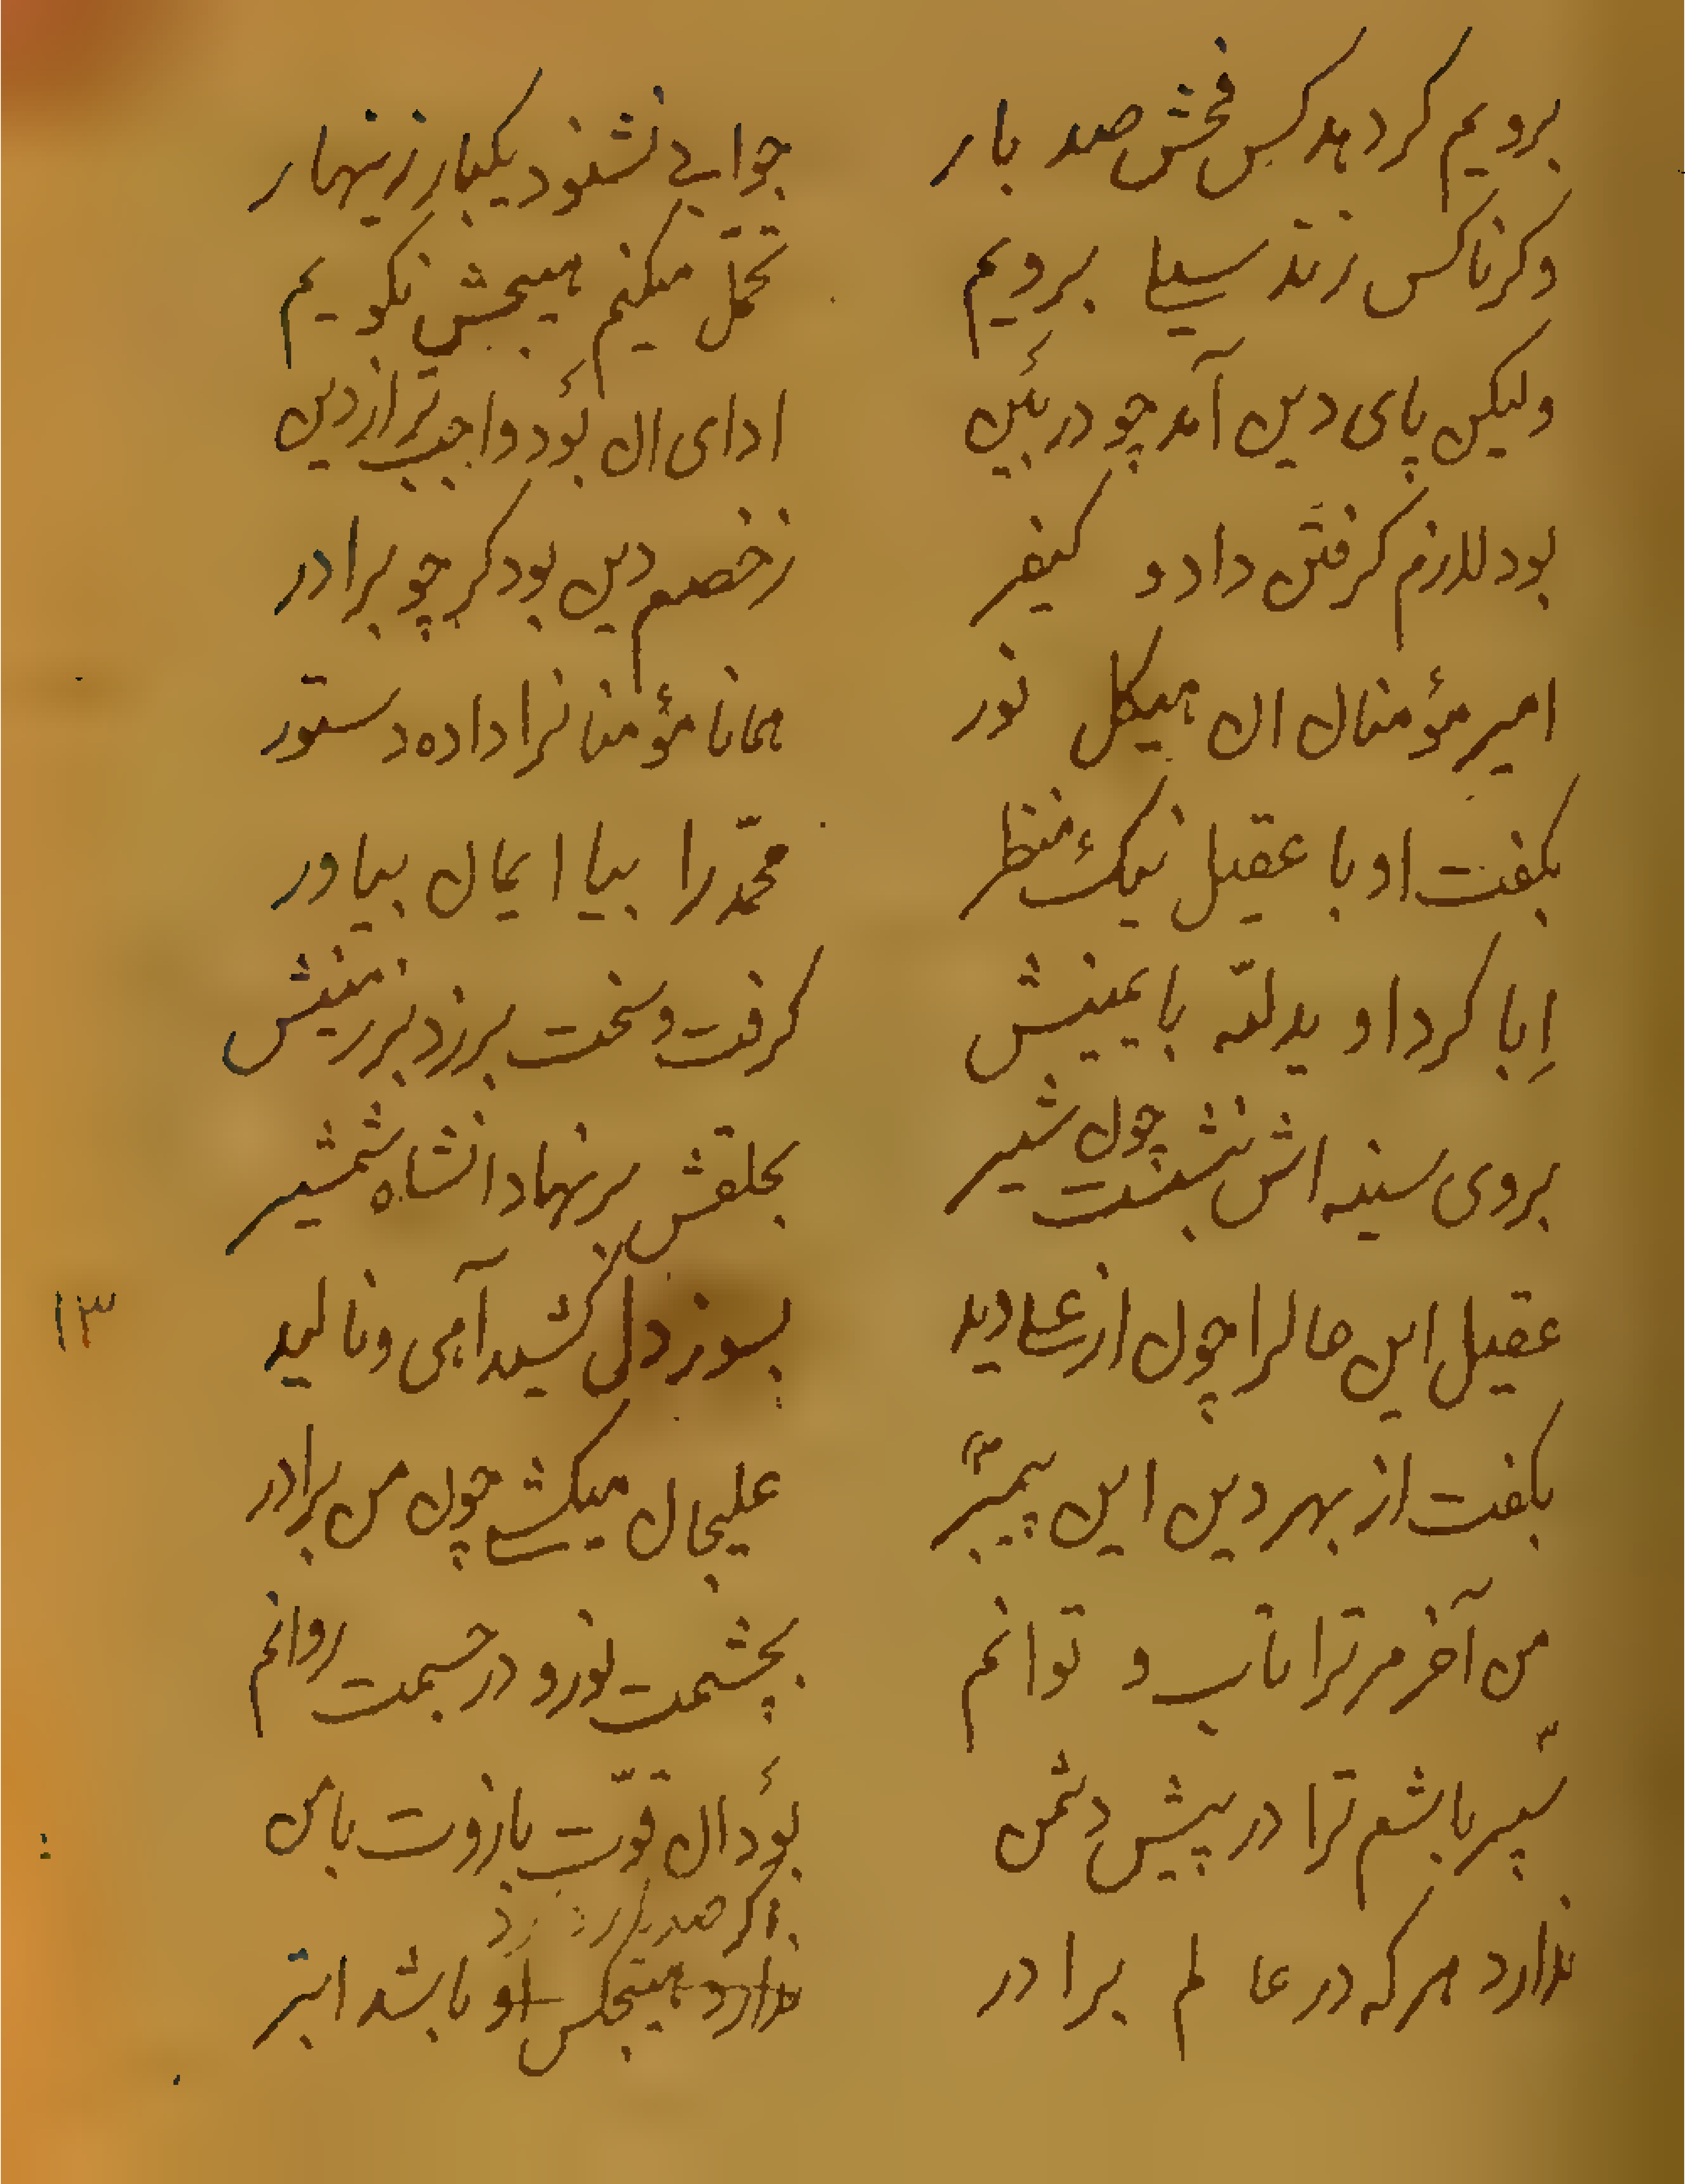 برویم کر دهد کس فحش صد بار
جوابی نشنود یکبار زینهار
وکر ناکس زند سیلی برویم
تحمّل میکنم هیچش نکویم
ولیکن پای دین آمد چو در بین
ادای ان بود واجب تر از دین
بود لازم کرفتن داد و کیفر
ز خصم دین بود کر چو برادر
امیر مؤمنان ان هیکل نور
همانا مؤمنانرا داده دستور
بکفت او با عقیل نیک منظر
محمّد را بیا ایمان بیاور
اِبا کرد او یدلله با یمینش
کرفت و سخت برزد بر زمینش
بروی سینه اش بنشست چون شیر
بحلقش بر نهاد انشاه شمشیر
عقیل این حالرا چون از علی دید
بسوز دل کشید آهی و نالید
۱۳
بکفت از بهر دین این پیمبر
علیجان میکشی چون من برادر
من آخر مر ترا تاب و توانم
بچشمت نور و در جسمت روانم
سپر باشم ترا در پیش دشمن
بود ان قوّت بازوت با من
اکر صد یار
ندارد هر که در عالم برادر
ندارد هیچکس او باشد ابتر